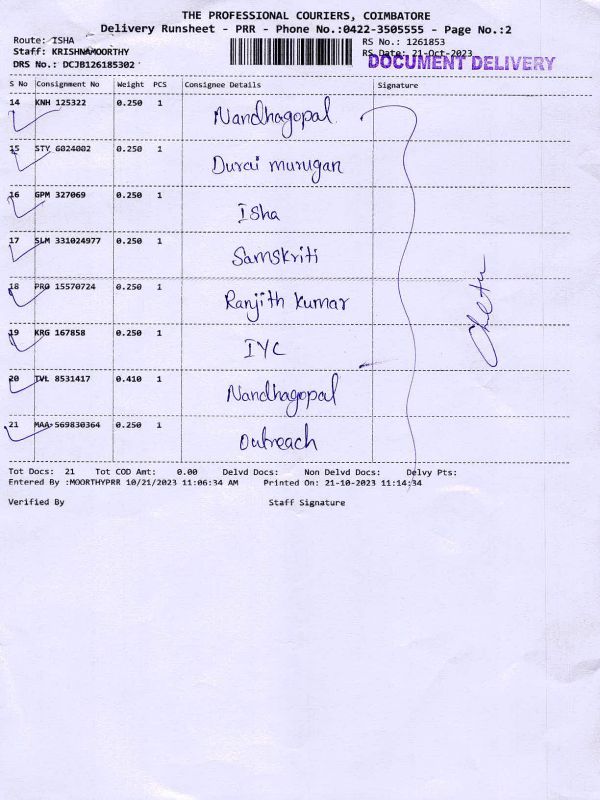 THE PROFESSIONAL COURIERS, COIMBATORE
Delivery Runsheet - PRR - Phone No.:0422-3505555 - Page No.:2
Route: ISHA RS No.: 1261853
Staff: KRISHNAMOORTHY RS Date: 21-Oct-2023
DRS No.: DCJB126185302 DOCUMENT DELIVERY
S No Consignment No Weight PCS Consignee Details Signature
14 KNH 125322 0.250 1 Nandhagopal
15 STY 6024002 0.250 1 Durai murugan
16 GPM 327069 0.250 1 Isha
17 SLM 331024977 0.250 1 Samskriti
18 PRO 15570724 0.250 1 Ranjith kumar
19 KRG 167858 0.250 1 IYC
20 TVL 8531417 0.410 1 Nandhagopal
21 MAA 569830364 0.250 1 Outreach
Tot Docs: 21 Tot COD Amt: 0.00 Delvd Docs: Non Delvd Docs: Delvy Pts:
Entered By :MOORTHYPRR 10/21/2023 11:06:34 AM Printed On: 21-10-2023 11:14:34
Verified By Staff Signature